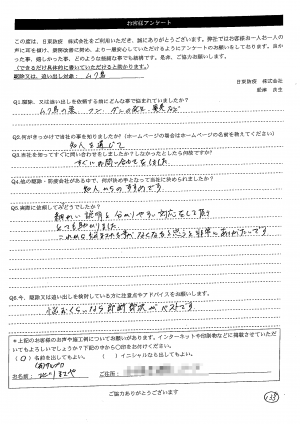 お客様アンケート
この度は、日東防疫 株式会社をご利用いただき、誠にありがとうございます。弊社ではお客様お一人お一人の
声に耳を傾け、顧客改善に努め、より一層安心していただけるようにアンケートのお願いをしております。良かっ
た事、嬉しかった事、どのような些細な事でも結構です。是非、ご協力お願いします。
(できるだけ具体的に書いていただけると助かります。)
日東防疫 株式会社
駆除又は、追い出し対象: ムク鳥
Q1.駆除、又は追い出しを依頼する前にどんな事で悩まれていましたか?
Q2.何がきっかけで当社の事を知りましたか?(ホームページの場合はホームページの名前を教えてください)
知人を通じて
Q3.当社を知ってすぐに問い合わせをしましたか?しなかったとしたら何故ですか?
すぐにお問い合わせをしました
Q4.他の駆除・防疫会社がある中で、何が決め手となって当社に決められましたか?
知人からのすすめです
Q5.実際に依頼してみてどうでしたか?
細かい説明と分かりやすい対応をして頂き
とても助かりました。
Q6.今、駆除又は追い出しを検討している方に注意点やアドバイスをお願いします。
悩むくらいなら即断即決がベストです
*上記のお客様のお声や施工例についてお願いがあります。インターネットや印刷物などに掲載させていただ
いてもよろしいでしょうか?下記の中から○印をお付けください。
(○)名前を出してもよい。 ( )イニシャルなら出してもよい。
お名前: ご住所:
ご協力ありがとうございます
133